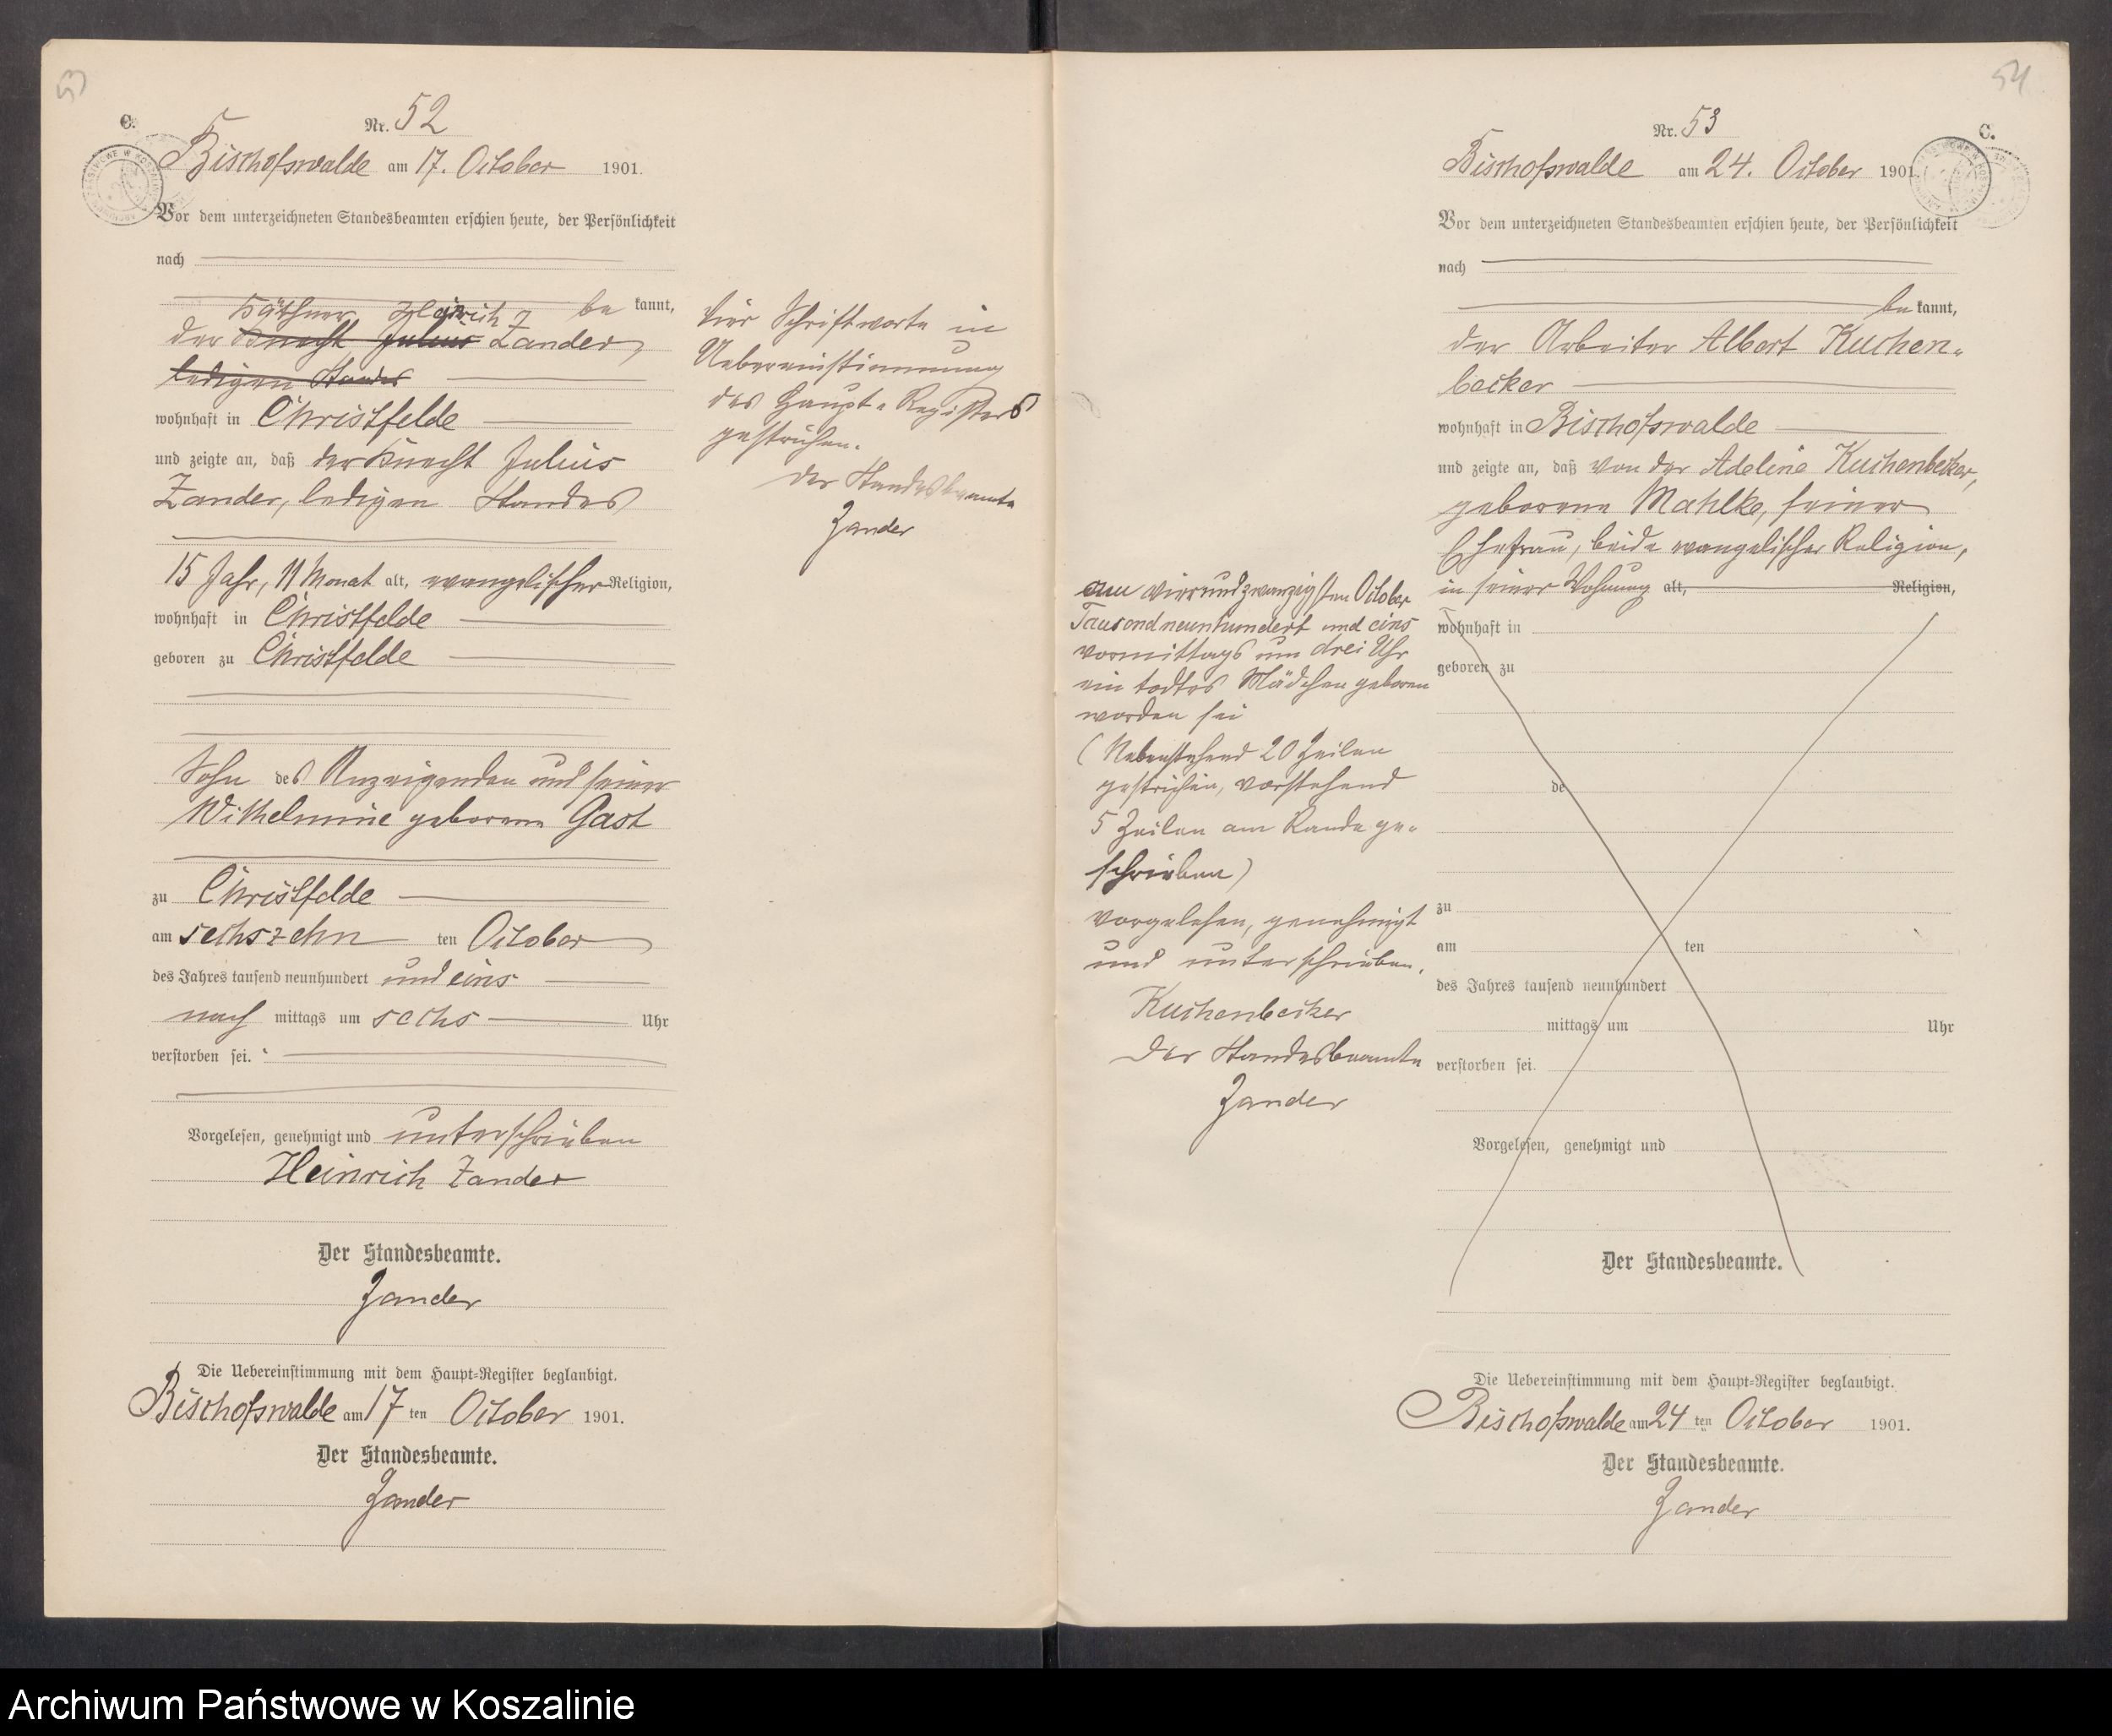 53
C.
Nr. 52
Bischofswalde am 17. October 1901.
Vor dem unterzeichneten Standesbeamten erschien heute, der Persönlichkeit
nach
be kannt,
Käthner Heinrich
der Knecht Julius Zander,
ledigen Standes
wohnhaft in Christfelde
und zeigte an, daß der Knecht Julius
Zander, ledigen Standes
15 Jahr, 11 Monat alt, evangelischer Religion,
wohnhaft in Christfelde
geboren zu Christfelde
Sohn des Anzeigenden und seiner
Wilhelmine geborene Gast
zu Christfelde
am sechszehn ten October
des Jahres tausend neunhundert und eins
nach mittags um sechs Uhr
verstorben sei.
Vorgelesen, genehmigt und unterschrieben
Heinrich Zander
Der Standesbeamte.
Zander
Die Uebereinstimmung mit dem Haupt-Register beglaubigt.
Bischofswalde am 17 ten October 1901.
Der Standesbeamte.
Zander
Vier Schriftworte in
Uebereinstimmung
des Haupt-Registers
gestrichen.
Der Standesbeamte
Zander
54
C.
Nr. 53
Bischofswalde am 24. October 1901.
Vor dem unterzeichneten Standesbeamten erschien heute, der Persönlichkeit
nach
be kannt,
der Arbeiter Albert Kuchen-
becker
wohnhaft in Bischofswalde
und zeigte an, daß von der Adeline Kuchenbecker,
geborene Mahlke, seiner
Ehefrau, beide evangelischer Religion,
in seiner Wohnung alt, Religion,
wohnhaft in
geboren zu
de
zu
am ten
des Jahres tausend neunhundert
mittags um Uhr
verstorben sei.
Vorgelesen, genehmigt und
Der Standesbeamte.
Die Uebereinstimmung mit dem Haupt-Register beglaubigt.
Bischofswalde am 24 ten October 1901.
Der Standesbeamte.
Zander
am vierundzwanzigsten October
Tausendneunhundert und eins
vormittags um drei Uhr
ein todtes Mädchen geboren
worden sei
(Nebenstehend 20 Zeilen
gestrichen, vorstehend
5 Zeilen am Rande ge-
schrieben)
vorgelesen, genehmigt
und unterschrieben.
Kuchenbecker
Der Standesbeamte
Zander
Archiwum Państwowe w Koszalinie